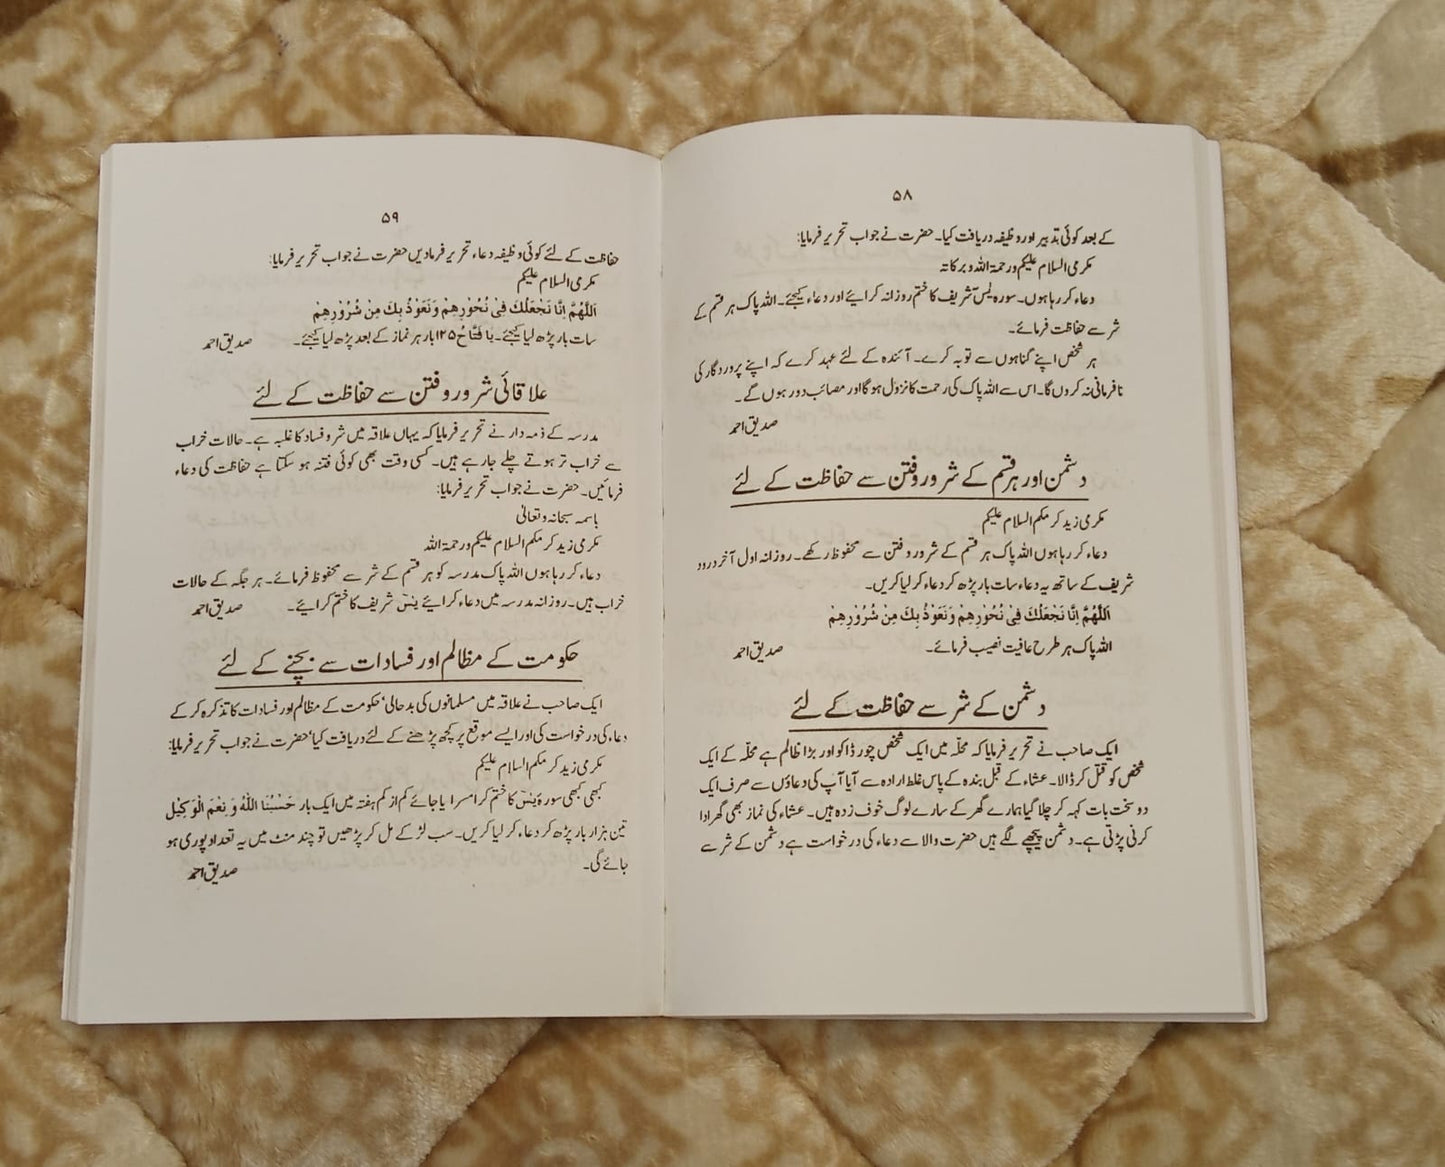 ۵۸
کے بعد کوئی تدبیر اور وظیفہ دریافت کیا۔ حضرت نے جواب تحریر فرمایا:
مکرمی السلام علیکم ورحمۃ اللہ وبرکاتہ
دعاء کر رہا ہوں۔ سورہ یٰسٓ شریف کا ختم روزانہ کرائیے اور دعاء کیجئے۔ اللہ پاک ہر قسم کے
شر سے حفاظت فرمائے۔
ہر شخص اپنے گناہوں سے توبہ کرے۔ آئندہ کے لئے عہد کرے کہ اپنے پروردگار کی
نافرمانی نہ کروں گا۔ اس سے اللہ پاک کی رحمت کا نزول ہوگا اور مصائب دور ہوں گے۔
صدیق احمد
دشمن اور ہر قسم کے شرور وفتن سے حفاظت کے لئے
مکرمی زید کرمکم السلام علیکم
دعاء کر رہا ہوں اللہ پاک ہر قسم کے شرور وفتن سے محفوظ رکھے۔ روزانہ اول آخر درود
شریف کے ساتھ یہ دعاء سات بار پڑھ کر دعاء کر لیا کریں۔
اَللّٰهُمَّ اِنَّا نَجْعَلُكَ فِیْ نُحُوْرِهِمْ وَنَعُوْذُ بِكَ مِنْ شُرُوْرِهِمْ
اللہ پاک ہر طرح عافیت نصیب فرمائے۔ صدیق احمد
دشمن کے شر سے حفاظت کے لئے
ایک صاحب نے تحریر فرمایا کہ محلّہ میں ایک شخص چور ڈاکو اور بڑا ظالم ہے محلّہ کے ایک
شخص کو قتل کر ڈالا۔ عشاء کے قبل بندہ کے پاس غلط ارادہ سے آیا آپ کی دعاؤں سے صرف ایک
دو سخت بات کہہ کر چلا گیا ہمارے گھر کے سارے لوگ خوف زدہ ہیں۔ عشاء کی نماز بھی گھر ادا
کرنی پڑتی ہے۔ دشمن پیچھے لگے ہیں حضرت والا سے دعاء کی درخواست ہے دشمن کے شر سے
۵۹
حفاظت کے لئے کوئی وظیفہ دعاء تحریر فرمادیں حضرت نے جواب تحریر فرمایا:
مکرمی السلام علیکم
اَللّٰهُمَّ اِنَّا نَجْعَلُكَ فِیْ نُحُوْرِهِمْ وَنَعُوْذُ بِكَ مِنْ شُرُوْرِهِمْ
سات بار پڑھ لیا کیجئے۔ یا فَتَّاحُ ۱۲۵ بار ہر نماز کے بعد پڑھ لیا کیجئے۔ صدیق احمد
علاقائی شرور وفتن سے حفاظت کے لئے
مدرسہ کے ذمہ دار نے تحریر فرمایا کہ یہاں علاقہ میں شر و فساد کا غلبہ ہے۔ حالات خراب
سے خراب تر ہوتے چلے جارہے ہیں۔ کسی وقت بھی کوئی فتنہ ہو سکتا ہے حفاظت کی دعاء
فرمائیں۔ حضرت نے جواب تحریر فرمایا:
باسمہ سبحانہ وتعالیٰ
مکرمی زید کرمکم السلام علیکم ورحمۃ اللہ
دعاء کر رہا ہوں اللہ پاک مدرسہ کو ہر قسم کے شر سے محفوظ فرمائے۔ ہر جگہ کے حالات
خراب ہیں۔ روزانہ مدرسہ میں دعاء کرائیے یٰسٓ شریف کا ختم کرائیے۔ صدیق احمد
حکومت کے مظالم اور فسادات سے بچنے کے لئے
ایک صاحب نے علاقہ میں مسلمانوں کی بدحالی، حکومت کے مظالم اور فسادات کا تذکرہ کر کے
دعاء کی درخواست کی اور ایسے موقع پر کچھ پڑھنے کے لئے دریافت کیا، حضرت نے جواب تحریر فرمایا:
مکرمی زید کرمکم السلام علیکم
کبھی کبھی سورۂ یٰسٓ کا ختم کرا سرا یا جائے کم از کم ہفتہ میں ایک بار حَسْبُنَا اللّٰهُ وَنِعْمَ الْوَكِیْل
تین ہزار بار پڑھ کر دعاء کر لیا کریں۔ سب لڑکے مل کر پڑھیں تو چند منٹ میں یہ تعداد پوری ہو
جائے گی۔ صدیق احمد